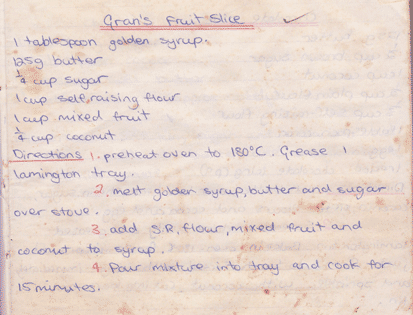 Gran's Fruit Slice ✓
1 tablespoon golden syrup.
125g butter
¼ cup sugar
1 cup self raising flour
1 cup mixed fruit
¼ cup coconut
Directions 1. preheat oven to 180°C. Grease 1
lamington tray.
2. melt golden syrup, butter and sugar
over stove.
3. add S.R. flour, mixed fruit and
coconut to syrup.
4. Pour mixture into tray and cook for
15 minutes.